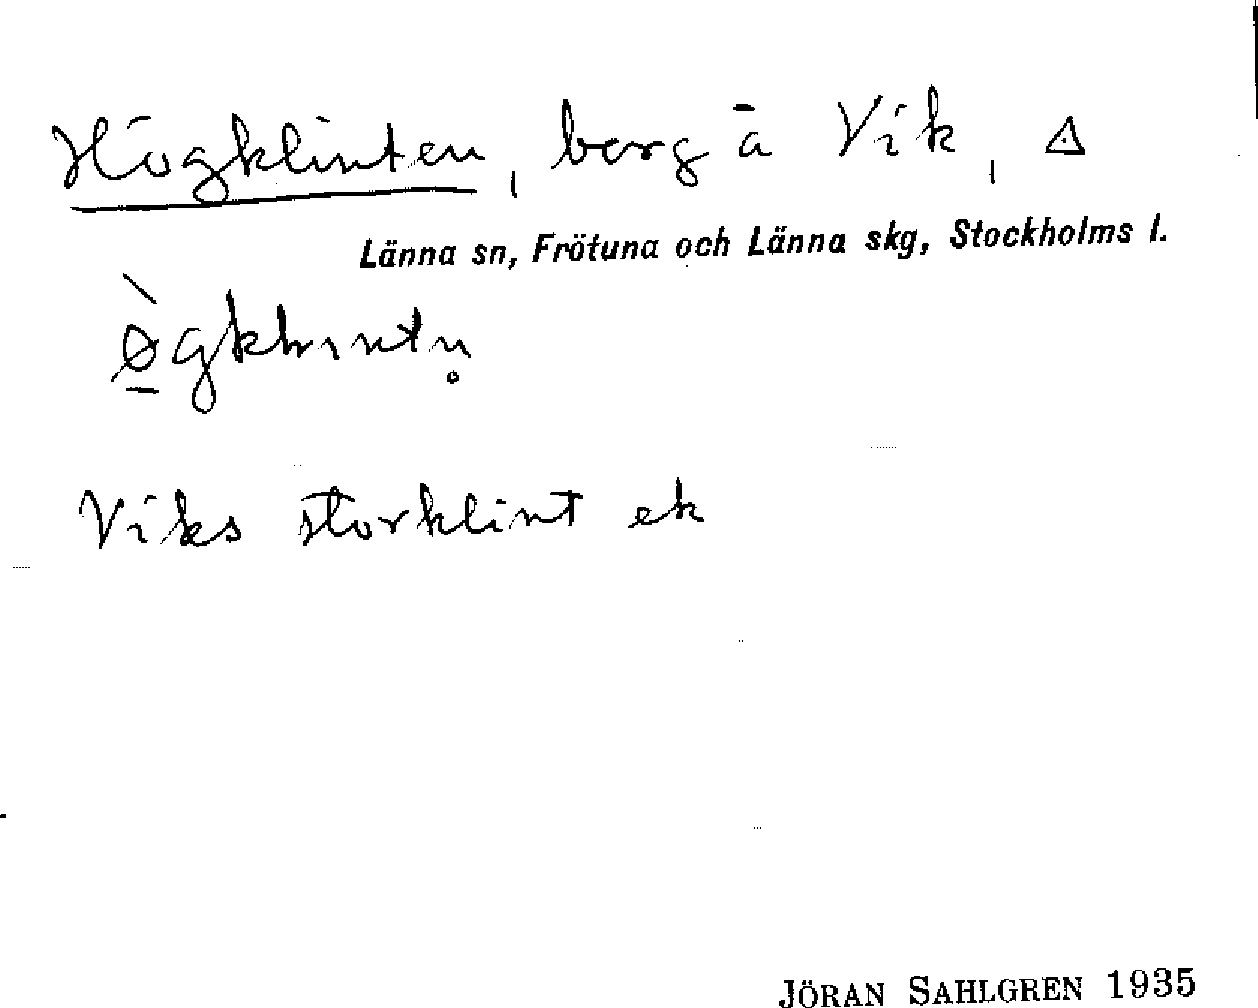 Högklinten, berg å Vik, ∆
Länna sn, Frötuna och Länna skg, Stockholms l.
Viks storklint ek
JÖRAN SAHLGREN 1935